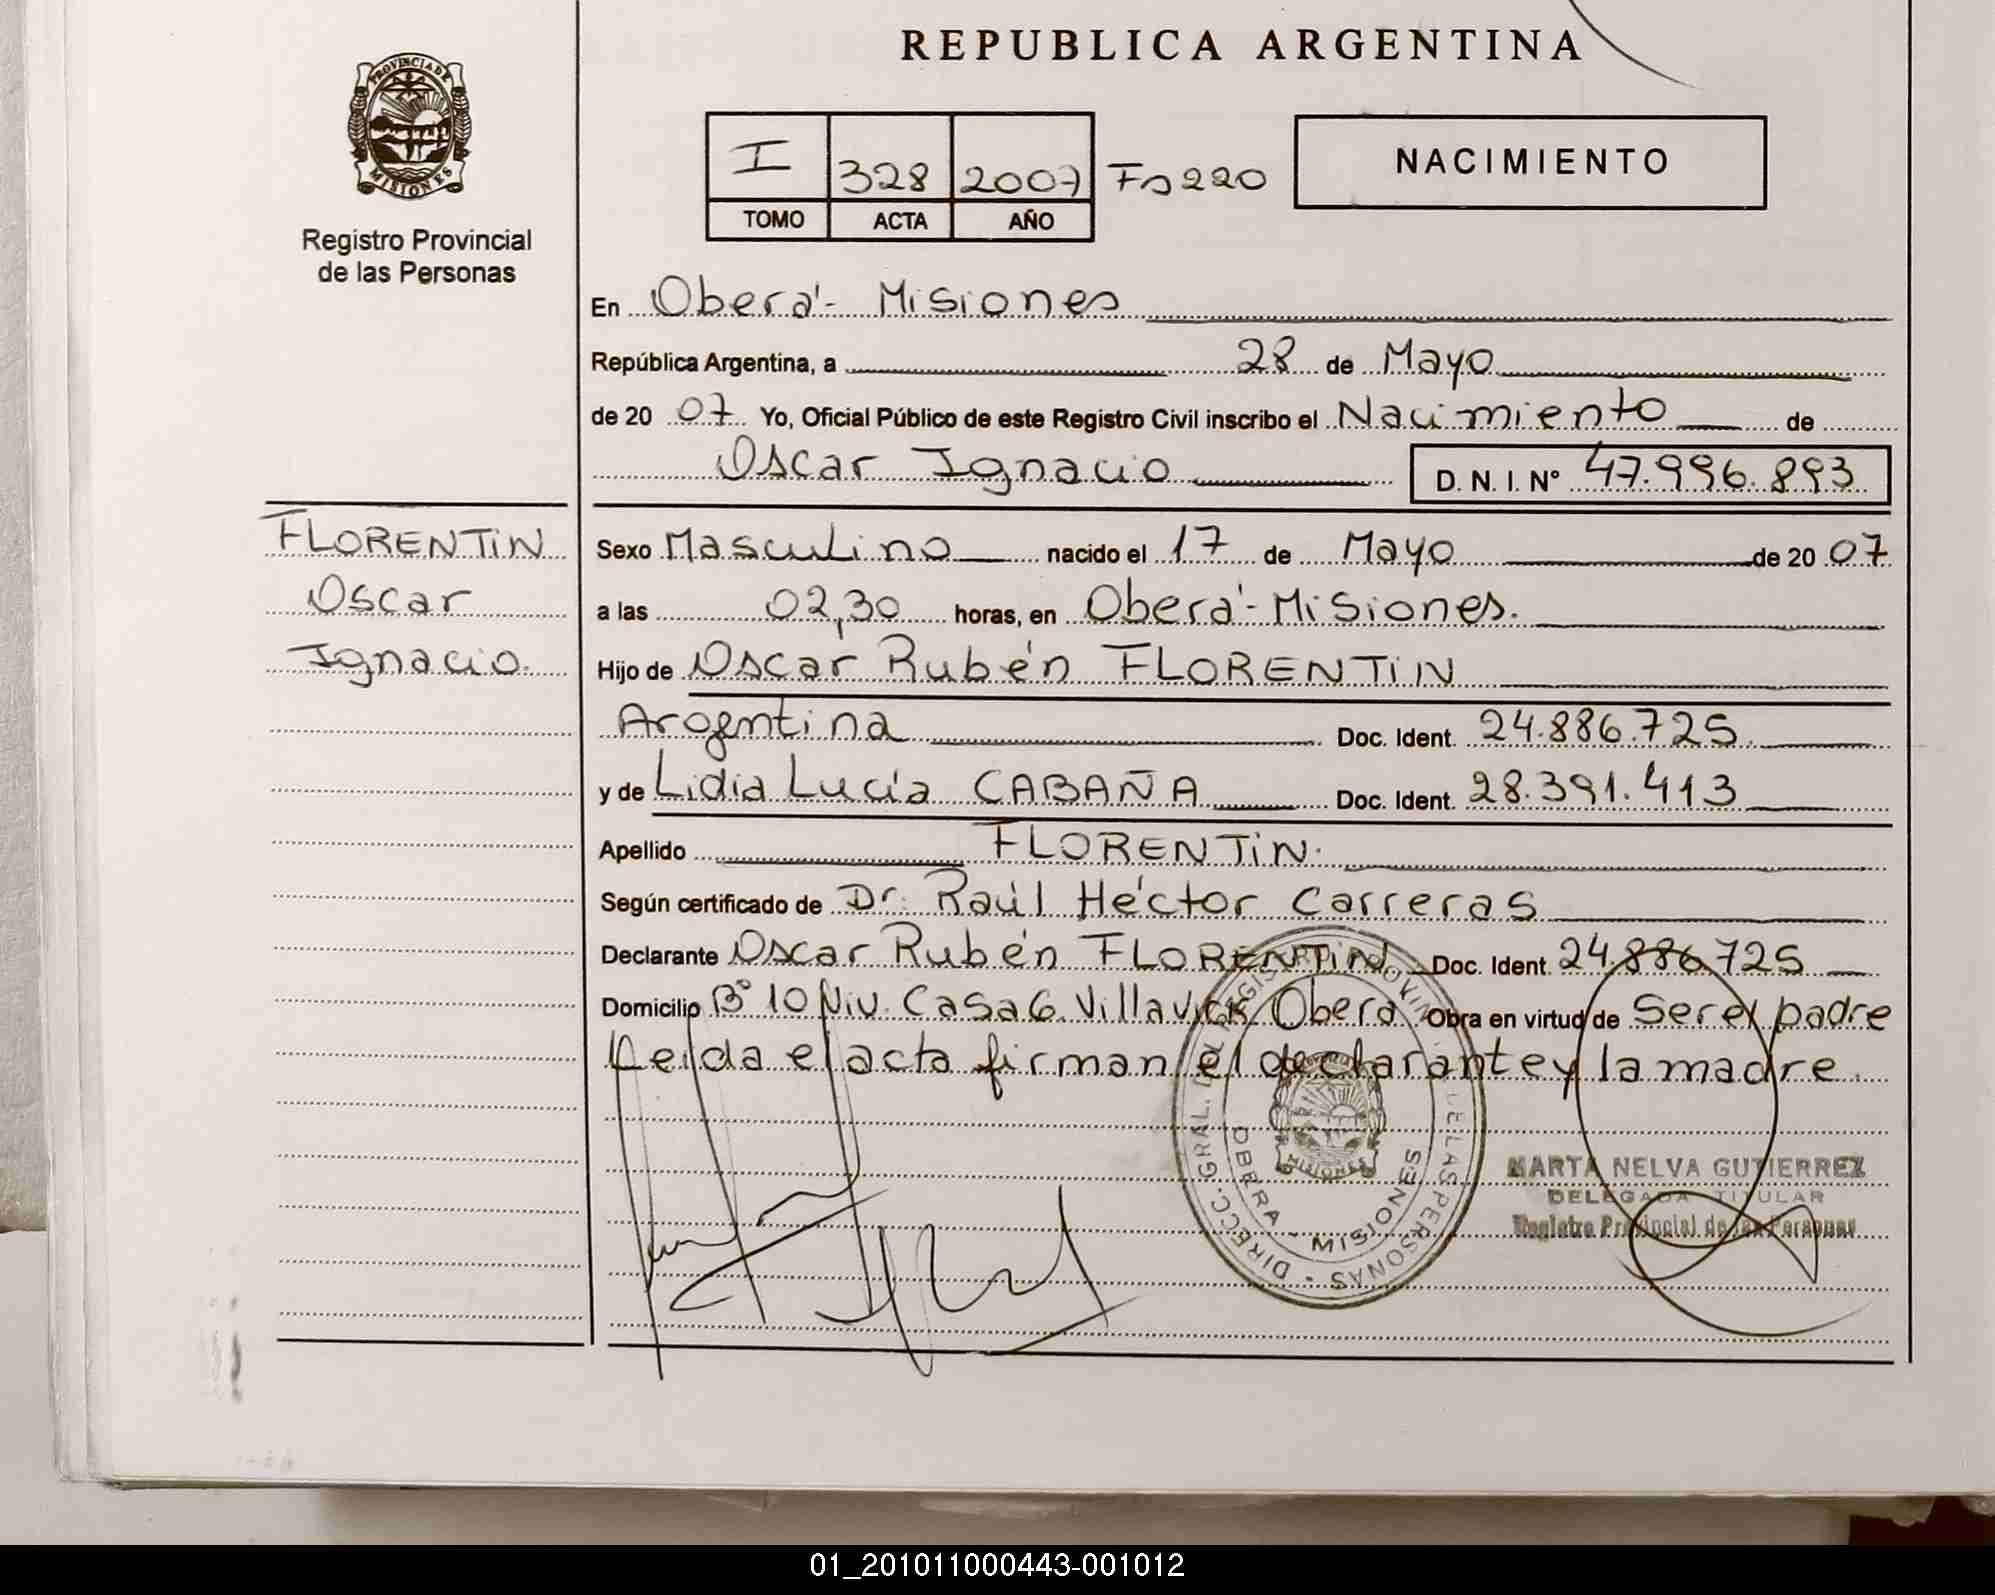 REPUBLICA ARGENTINA
PROVINCIA DE
MISIONES
Registro Provincial
de las Personas
I 328 2007 Fº 220
TOMO ACTA AÑO
NACIMIENTO
En Oberá - Misiones
República Argentina, a 28 de Mayo
de 20 07 Yo, Oficial Público de este Registro Civil inscribo el Nacimiento de
Oscar Ignacio D. N. I. Nº 47.996.893
FLORENTIN
Oscar
Ignacio.
Sexo Masculino nacido el 17 de Mayo de 20 07
a las 02,30 horas, en Oberá - Misiones.
Hijo de Oscar Rubén FLORENTIN
Argentina Doc. Ident. 24.886.725.
y de Lidia Lucía CABAÑA Doc. Ident. 28.391.413
Apellido FLORENTIN.
Según certificado de Dr. Raúl Héctor Carreras
Declarante Oscar Rubén FLORENTIN. Doc. Ident. 24.886.725
Domicilio Bº 10 Niv. Casa 6. Villa Oberá Obra en virtud de Ser el padre
Leida el acta firman el declarante y la madre.
DIRECC. GRAL. DEL REGISTRO PROVINCIAL DE LAS PERSONAS
OBERA - MISIONES
MISIONES
MARTA NELVA GUTIERREZ
DELEGADA TITULAR
Registro Provincial de las Personas
01_201011000443-001012